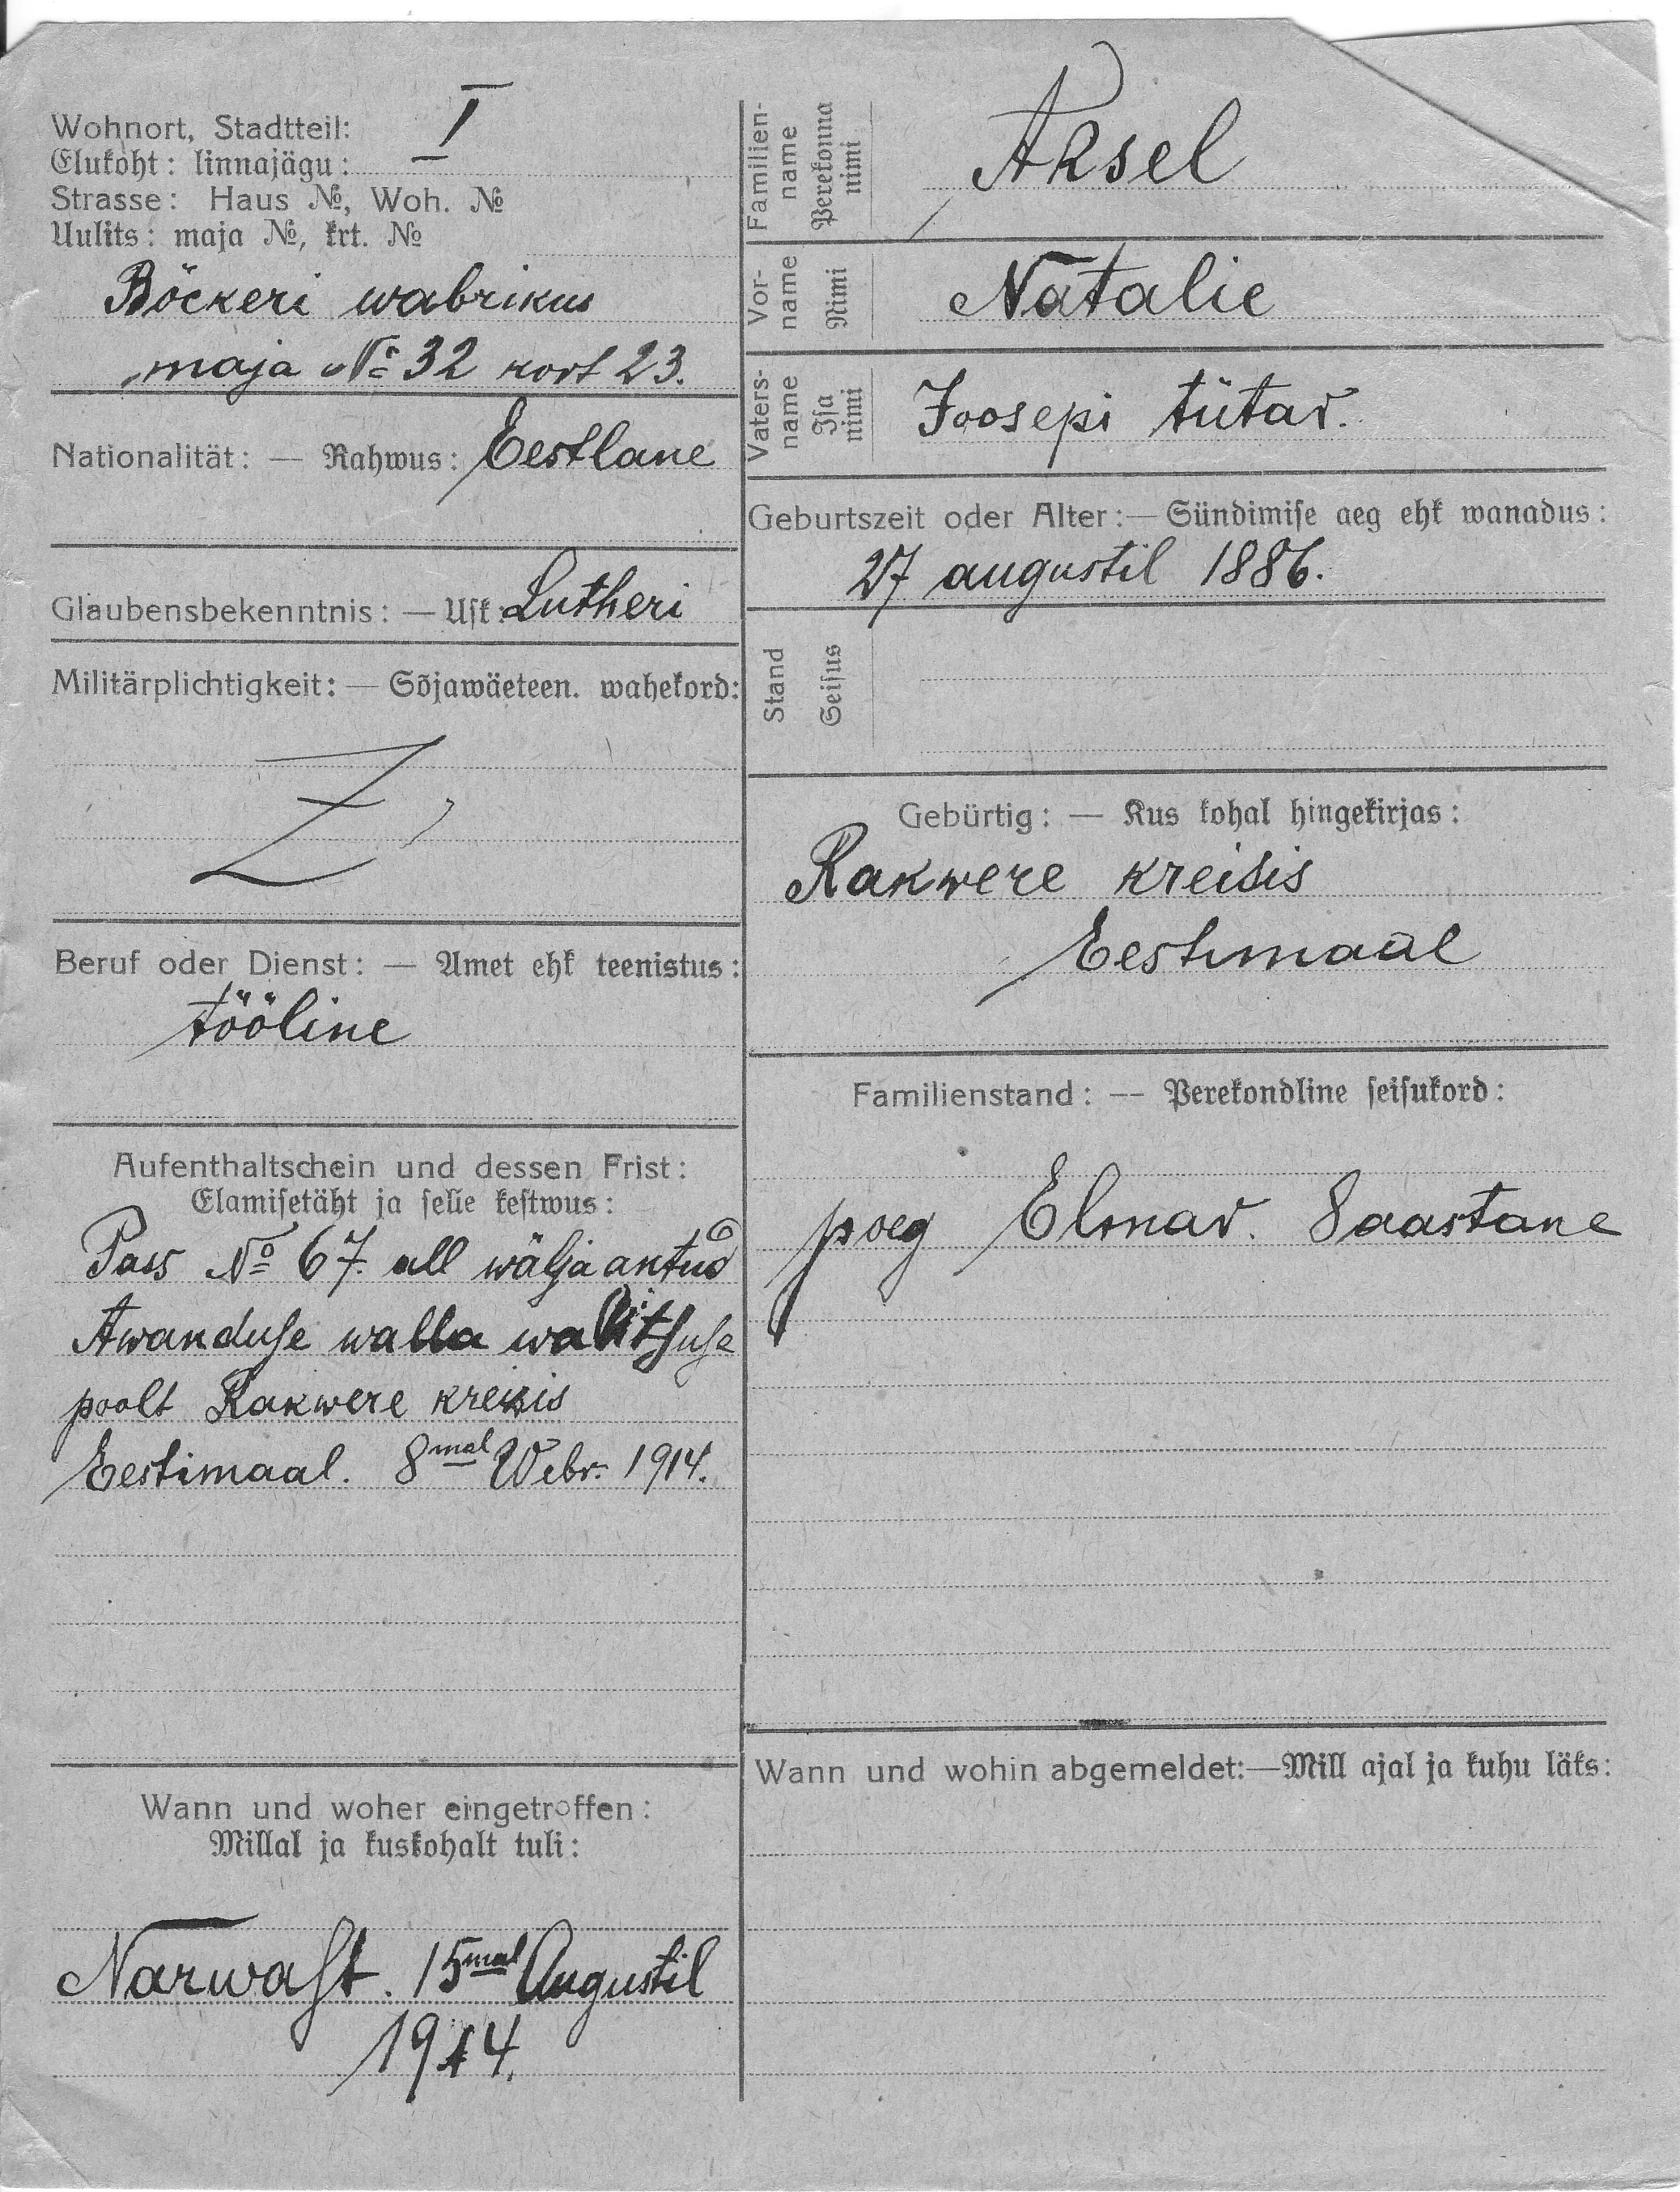 Wohnort, Stadtteil: I
Elukoht: linnajägu:
Strasse: Haus №, Woh. №
Uulits: maja №, krt. №
Böckeri wabrikus
maja № 32 kort 23.
Nationalität: — Rahwus: Eestlane
Glaubensbekenntnis: — Usk: Lutheri
Militärplichtigkeit: — Sõjawäeteen. wahekord:
Beruf oder Dienst: — Amet ehk teenistus:
tööline
Aufenthaltschein und dessen Frist:
Elamisetäht ja selle kestwus:
Pass № 67. all wäljaantud
Awanduse walla walitsuse
poolt Rakwere kreisis
Eestimaal. 8mal Webr. 1914.
Wann und woher eingetroffen:
Millal ja kuskohalt tuli:
Narwast. 15mal Augustil
1914.
Familien-
name
Perekonna
nimi
Aksel
Vor-
name
Nimi
Natalie
Vaters-
name
Isa
nimi
Joosepi tütar.
Geburtszeit oder Alter: — Sündimise aeg ehk wanadus:
27 augustil 1886.
Stand
Seisus
Gebürtig: — Kus kohal hingekirjas:
Rakwere kreisis
Eestimaal
Familienstand: — Perekondline seisukord:
poeg Elmar. Saastane
Wann und wohin abgemeldet:—Mill ajal ja kuhu läks: